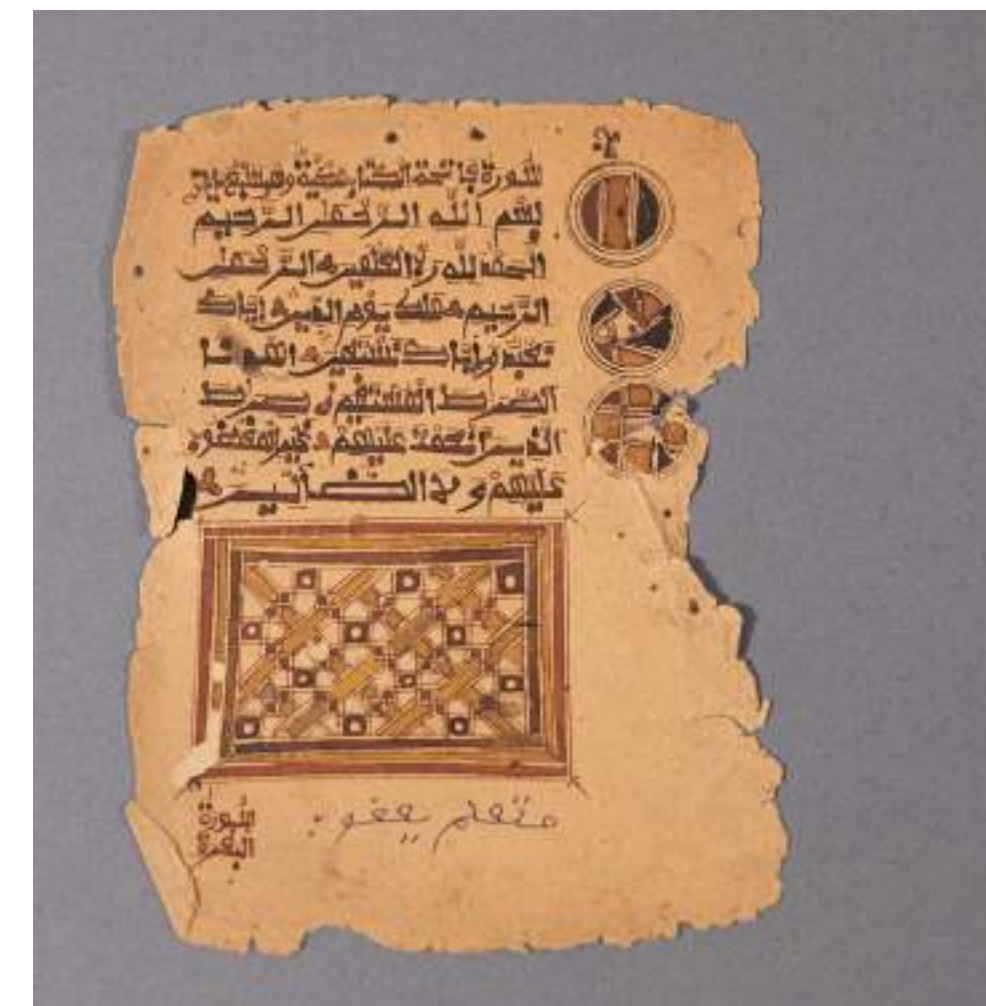 سورة فاتحة الكتاب مكية وهي سبع ايات
بسم الله الرحمن الرحيم
الحمد لله رب العلمين الرحمن
الرحيم ملك يوم الدين إياك
نعبد وإياك نستعين اهدنا
الصرط المستقيم صرط
الذين أنعمت عليهم غير المغضوب
عليهم ولا الضالين
متعلم يعقوب
سورة
البقرة